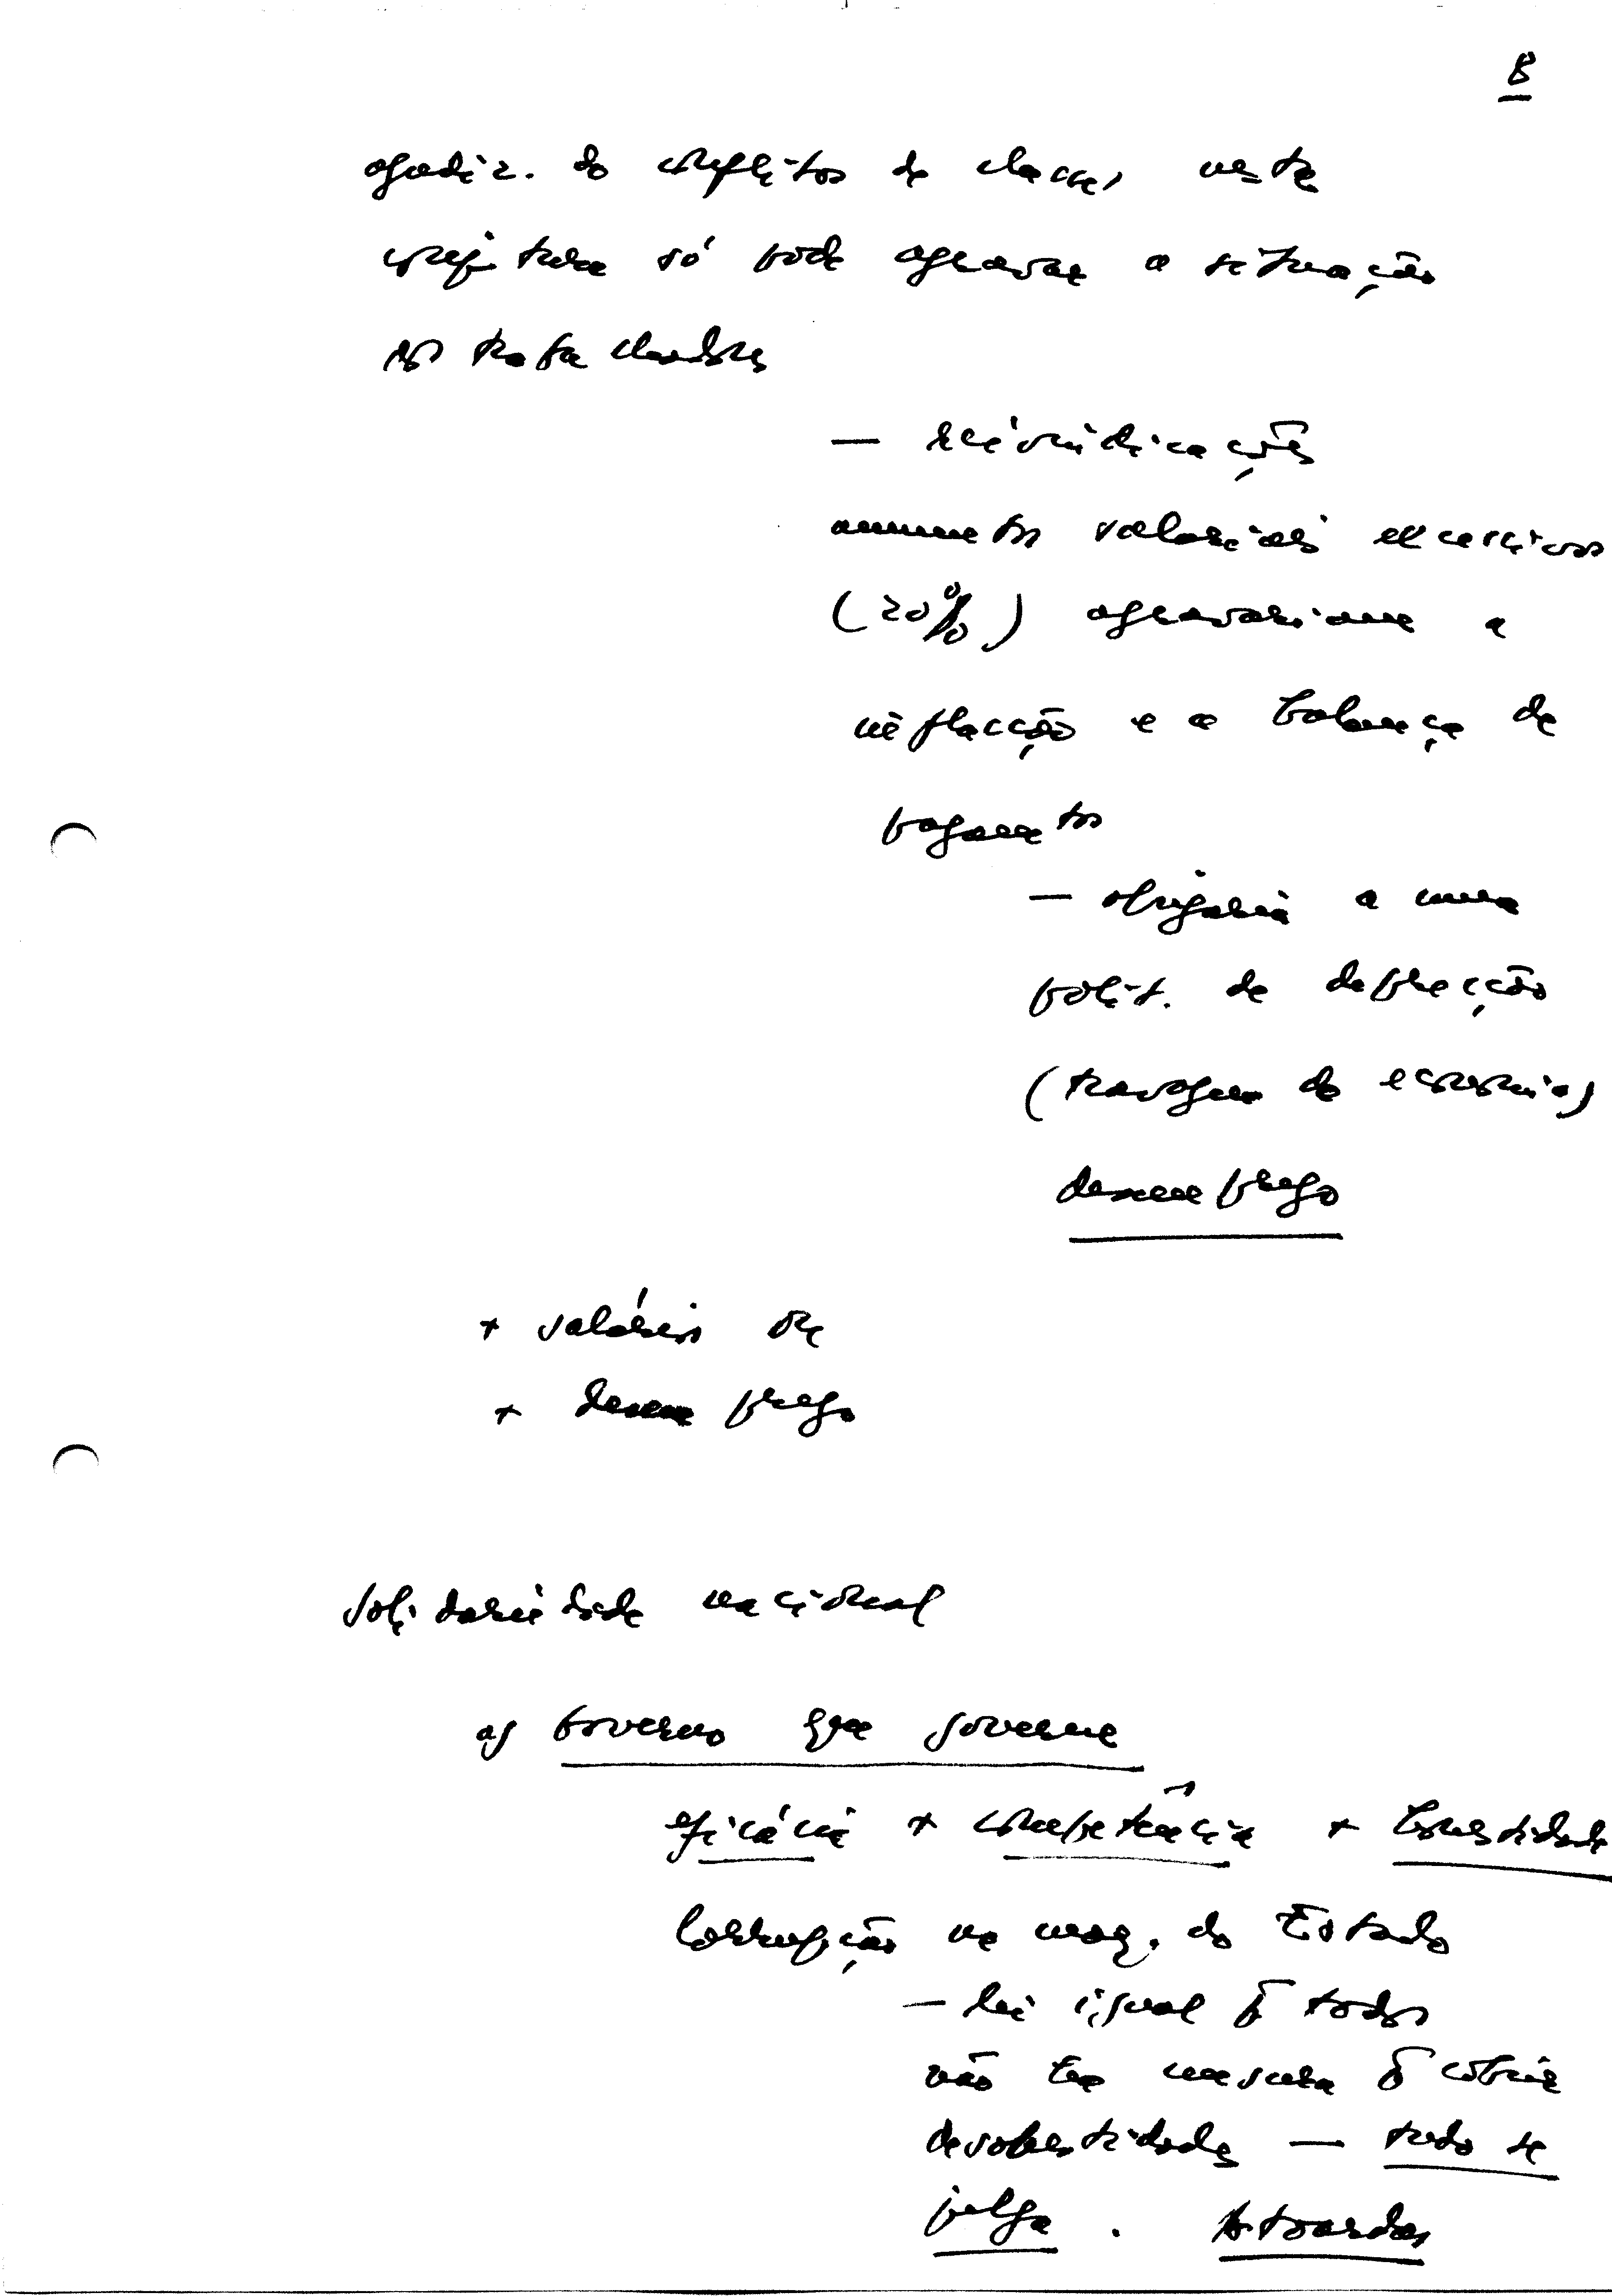 8
agudiz. do conflitos de classe, nesta
conjuntura só pode agravar a situação
dos trabalhadores
— reivindicações
aumentos salariais excessivos
(20%) agravariam a
inflacção e a balança de
pagamentos
— obrigaria a uma
polit. de deflacção
(travagem da economia)
desemprego
+ salários ou
+ desemprego
Solidariedade nacional
a) Governo que governe
eficácia + competência + honestidade
Corrupção na maq. do Estado
— lei igual p̄ todos
não ter censura p̄ cobrir
desonestidades — tudo se
julga. Atoardas